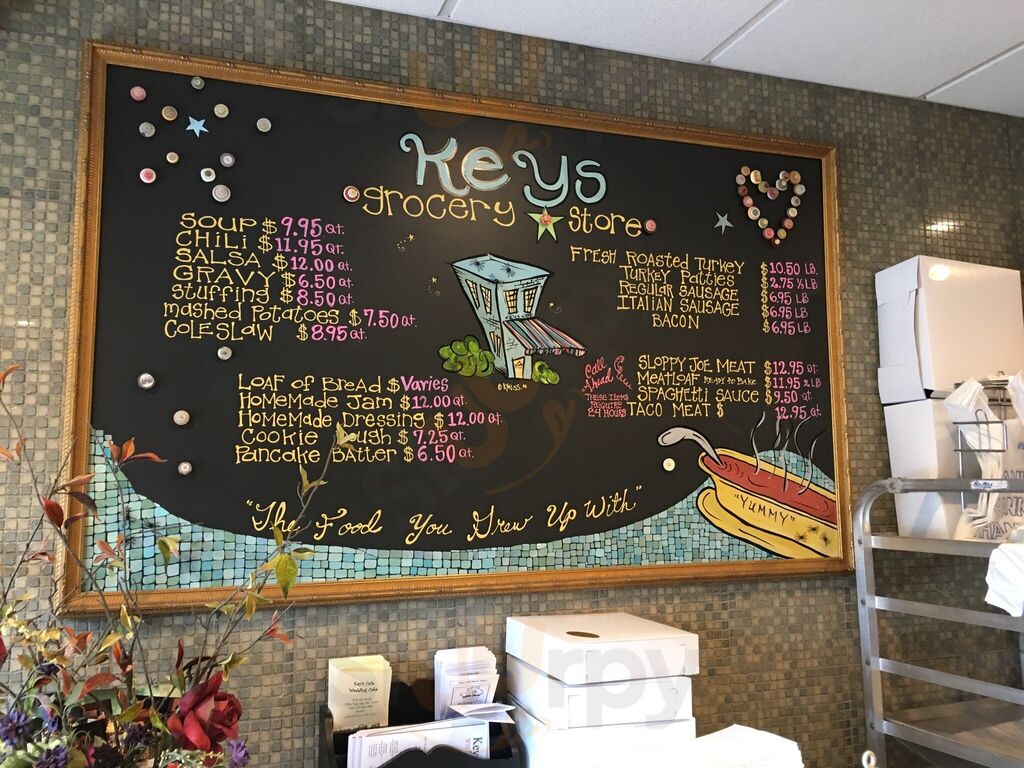 Keys
grocery store
SOUP $ 9.95 QT.
CHILI $ 11.95 QT.
SALSA $ 12.00 QT.
GRAVY $ 6.50 QT.
STUFFING $ 8.50 QT.
mashed Potatoes $ 7.50 QT.
COLESLAW $ 8.95 QT.
FRESH ROASTED TURKEY $ 10.50 LB.
TURKEY PATTIES $ 2.75 ½ LB
REGULAR SAUSAGE $ 6.95 LB
ITALIAN SAUSAGE $ 6.95 LB
BACON $ 6.95 LB
Call Ahead
THESE ITEMS
REQUIRE
24 HOURS
SLOPPY JOE MEAT $ 12.95 QT.
MEATLOAF READY TO BAKE $ 11.95 2 LB
SPAGHETTI SAUCE $ 9.50 QT.
TACO MEAT $ 12.95 QT.
LOAF OF BREAD $ Varies
HOMEMADE JAM $ 12.00 QT.
HOMEMADE DRESSING $ 12.00 QT.
COOKIE DOUGH $ 7.25 QT.
PANCAKE BATTER $ 6.50 QT.
"The Food You Grew Up With"
"YUMMY"
Key's Cafe
Wedding Cake